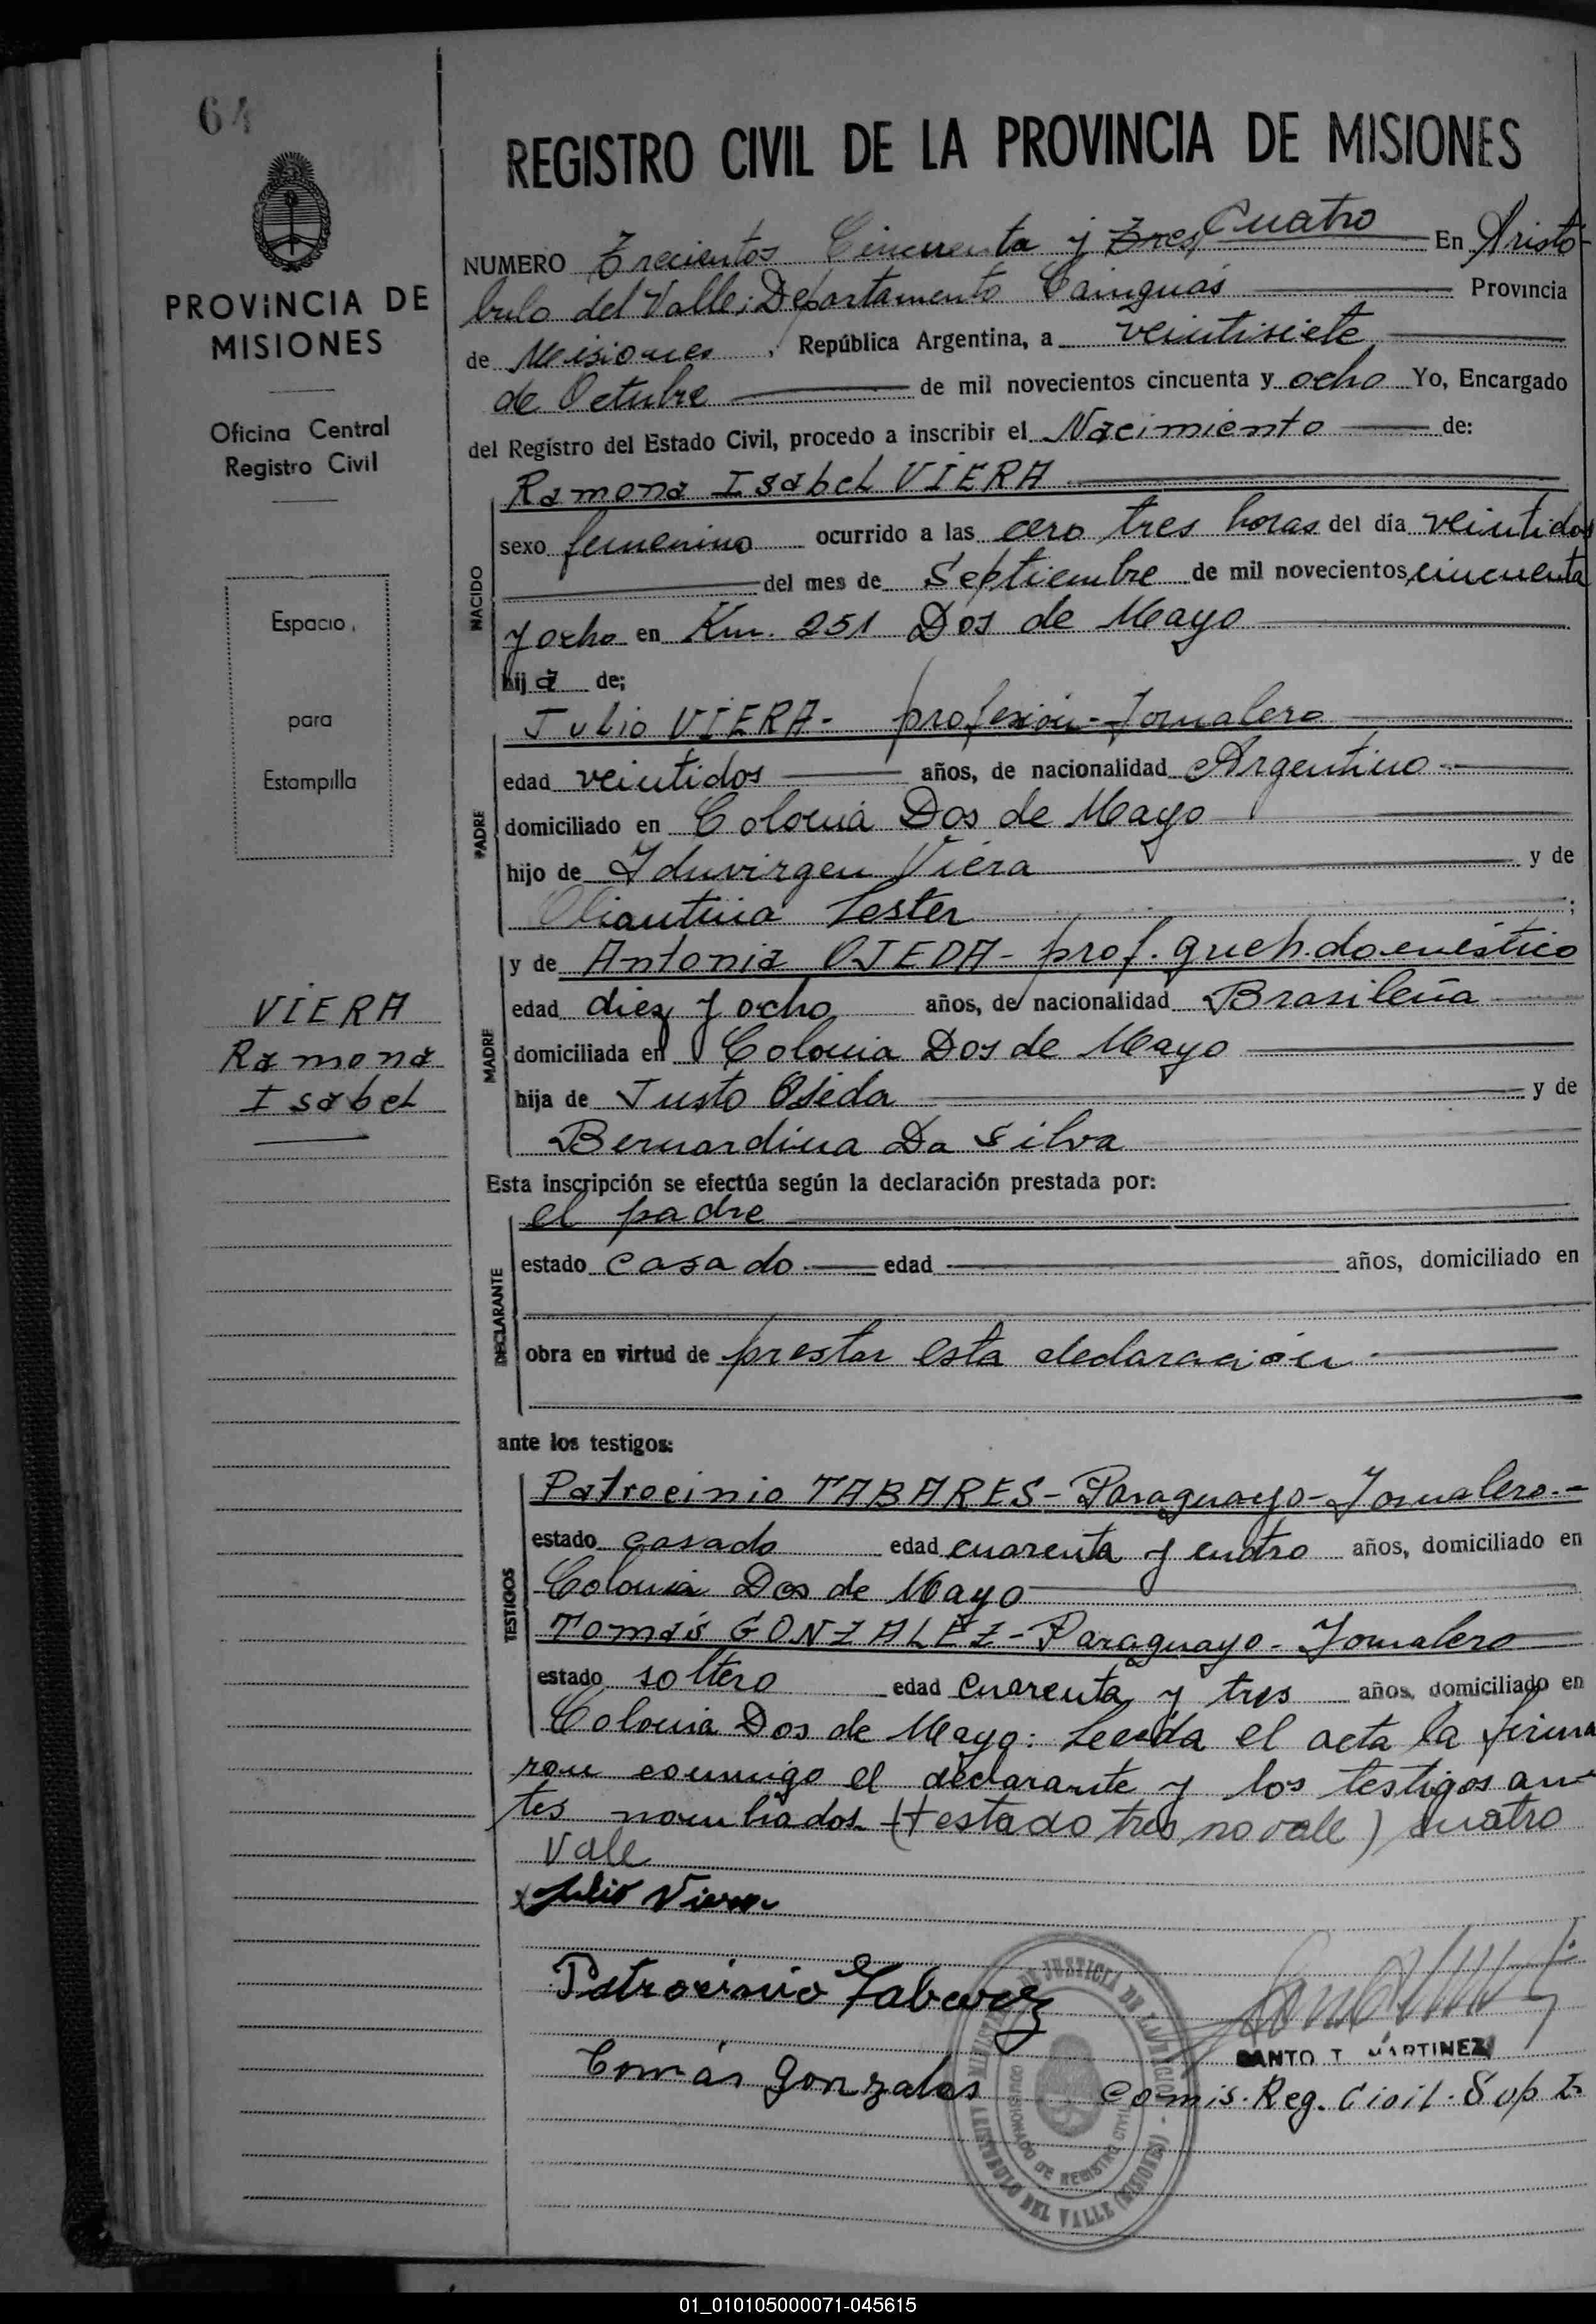 64
PROVINCIA DE
MISIONES
Oficina Central
Registro Civil
Espacio
para
Estampilla
VIERA
Ramona
Isabel
REGISTRO CIVIL DE LA PROVINCIA DE MISIONES
NUMERO Trecientos Cincuenta y Tres, Cuatro En Aristó-
bulo del Valle; Departamento Cainguás Provincia
de Misiones, República Argentina, a veintisiete
de Octubre de mil novecientos cincuenta y ocho Yo, Encargado
del Registro del Estado Civil, procedo a inscribir el Nacimiento de:
Ramona Isabel VIERA
NACIDO
sexo femenino ocurrido a las cero tres horas del día veintidos
del mes de Septiembre de mil novecientos cincuenta
y ocho en Km. 251 Dos de Mayo
hija de;
PADRE
Julio VIERA - profesión - Jornalero
edad veintidos años, de nacionalidad Argentino
domiciliado en Colonia Dos de Mayo
hijo de Iduvirgen Viera y de
Lester;
MADRE
y de Antonia OJEDA - prof. queh. doméstico
edad diez y ocho años, de nacionalidad Brasileña
domiciliada en Colonia Dos de Mayo
hija de Justo Ojeda y de
Bernardina Da Silva
Esta inscripción se efectúa según la declaración prestada por:
DECLARANTE
el padre
estado casado edad años, domiciliado en
obra en virtud de prestar esta declaración
ante los testigos:
TESTIGOS
Patrocinio TABARES - Paraguayo - Jornalero.-
estado casado edad cuarenta y cuatro años, domiciliado en
Colonia Dos de Mayo
Tomás GONZALEZ - Paraguayo - Jornalero
estado soltero edad cuarenta y tres años, domiciliado en
Colonia Dos de Mayo: Leeida el acta la firma
ron conmigo el declarante y los testigos an-
tes nombrados (testado tres no vale) cuatro
Vale
x Julio Viera
Patrocinio Tabarez
Tomás Gonzales
SANTO T. MARTINEZ
Comis. Reg. Civil. Sup
MINISTERIO DE JUSTICIA DE LA NACION
COMISIONADO DE REGISTRO CIVIL
ARISTOBULO DEL VALLE (MISIONES)
01_010105000071-045615